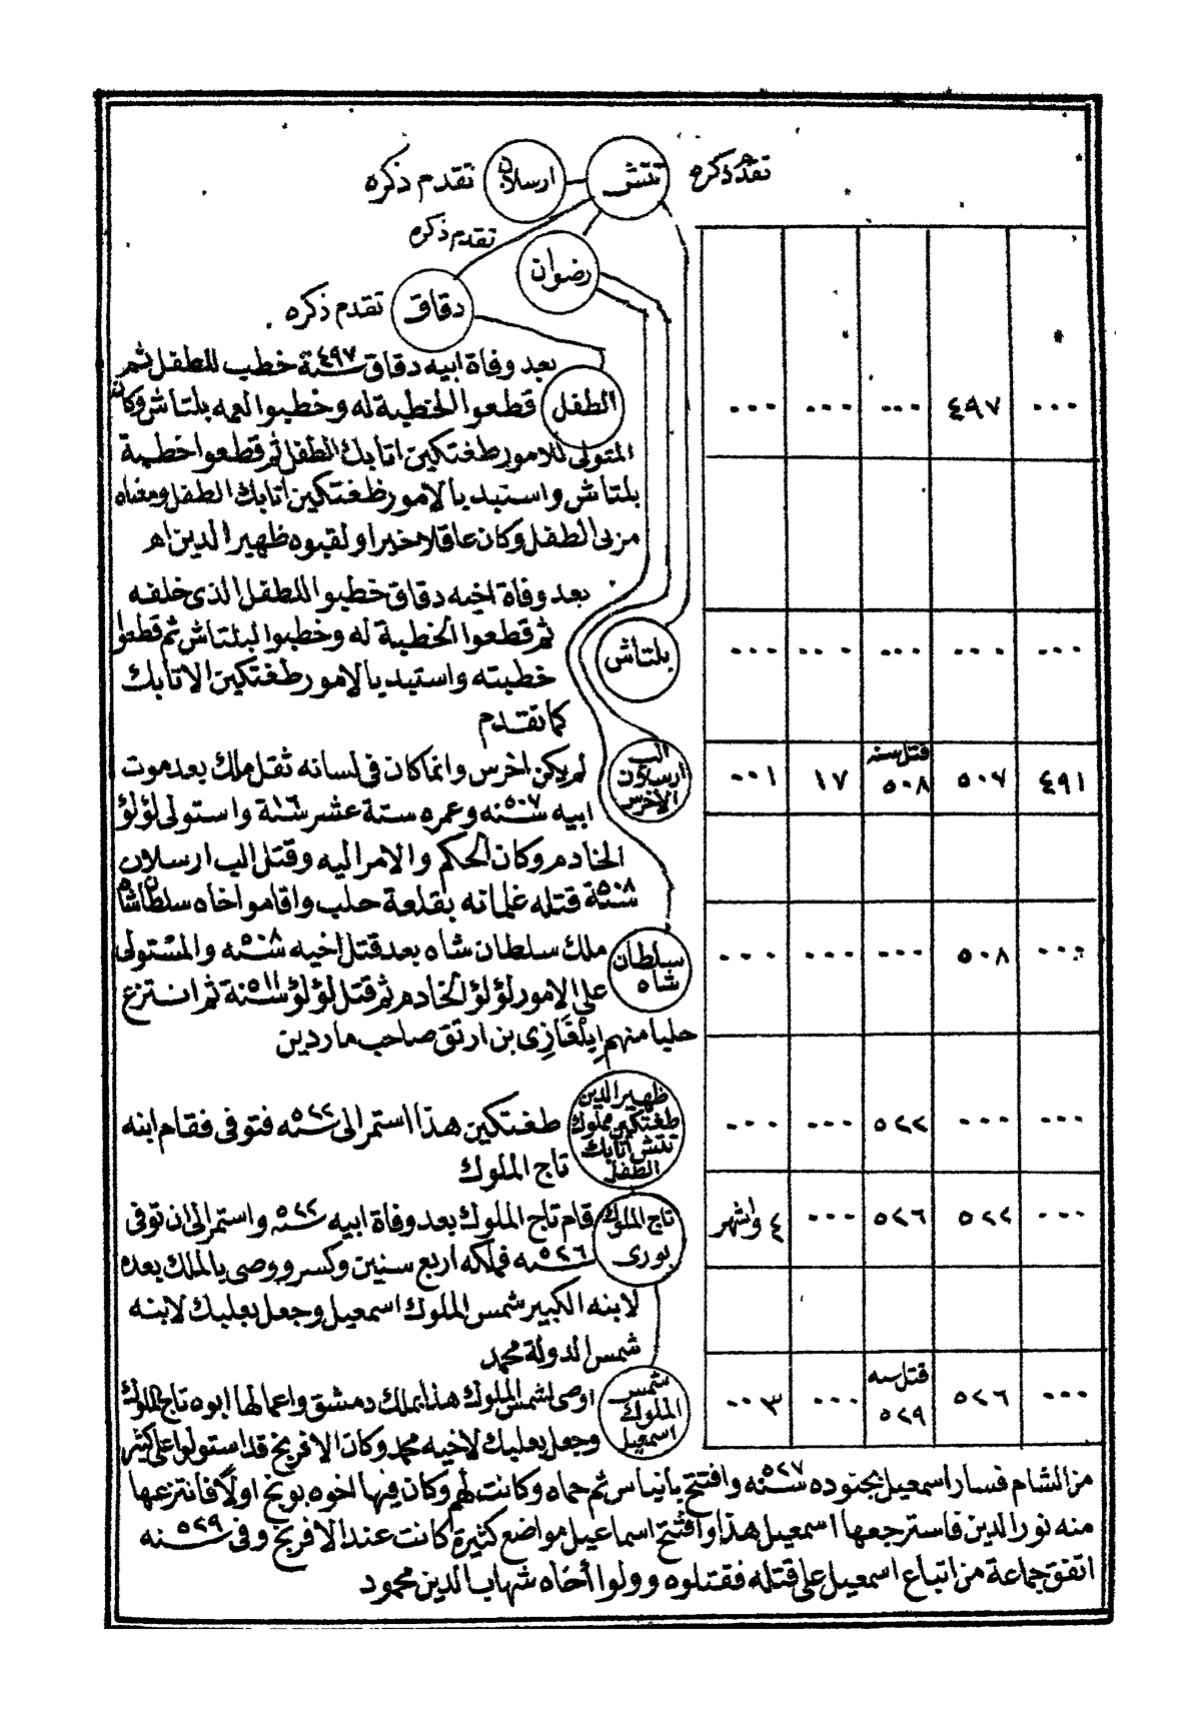 تقدم ذكره
تتش
ارسلان
تقدم ذكره
تقدم ذكره
رضوان
دقاق
تقدم ذكره
بعد وفاة ابيه دقاق سنة ٤٩٧ خطب للطفل ثم
الطفل
قطعوا الخطبة له وخطبوا لعمه بلتاش وكان
المتولى للامور طغتكين اتابك الطفل ثم قطعوا خطبة
بلتاش واستبد بالامور طغتكين اتابك الطفل ومعناه
مربى الطفل وكان عاقلا خيرا ولقبوه ظهير الدين اه
... ٤٩٧ ... ... ...
بعد وفاة اخيه دقاق خطبوا للطفل الذى خلفه
ثم قطعوا الخطبة له وخطبوا لبلتاش ثم قطعوا
بلتاش
خطبته واستبد بالامور طغتكين الاتابك
كما تقدم
... ... ... ... ...
الب
ارسلان
الاخرس
لم يكن اخرس وانما كان فى لسانه ثقل ملك بعد موت
ابيه سنه ٥٠٧ وعمره ستة عشر سنة ١٦ واستولى لؤلؤ
الخادم وكان الحكم والامر اليه وقتل الب ارسلان
سنة ٥٠٨ قتله غلمانه بقلعة حلب واقاموا اخاه سلطان شاه
٤٩١ ٥٠٧ قتل سنه ٥٠٨ ١٧ ٠٠١
سلطان
شاه
ملك سلطان شاه بعد قتل اخيه سنه ٥٠٨ والمستولى
على الامور لؤلؤ الخادم ثم قتل لؤلؤ سنة ٥١١ ثم انتزع
حلبا منهم إيلغازى بن ارتق صاحب ماردين
... ٥٠٨ ... ... ...
ظهير الدين
طغتكين مملوك
تتش اتابك
الطفل
طغتكين هذا استمر الى سنه ٥٢٢ فتوفى فقام ابنه
تاج الملوك
... ... ٥٢٢ ... ...
تاج الملوك
بورى
قام تاج الملوك بعد وفاة ابيه سنه ٥٢٢ واستمر الى ان توفى
سنه ٥٢٦ فملكه اربع سنين وكسر ووصى بالملك بعده
لابنه الكبير شمس الملوك اسمعيل وجعل بعلبك لابنه
شمس الدولة محمد
... ٥٢٢ ٥٢٦ ... ٤ واشهر
شمس
الملوك
اسمعيل
اوصى لشمس الملوك هذا بملك دمشق واعمالها ابوه تاج الملوك
وجعل بعلبك لاخيه محمد وكان الافرنج قد استولوا على كثير
... ٥٢٦ قتل سه ٥٢٩ ... ٠٠٣
من الشام فسار اسمعيل بجنوده سنه ٥٢٧ وافتتح بانياس ثم حماه وكانت لهم وكان فيها اخوه بونج اولا فانتزعها
منه نور الدين فاسترجعها اسمعيل هذا وافتتح اسماعيل مواضع كثيرة كانت عند الافرنج وفى سنه ٥٢٩
اتفق جماعة من اتباع اسمعيل على قتله فقتلوه وولوا أخاه شهاب الدين محمود